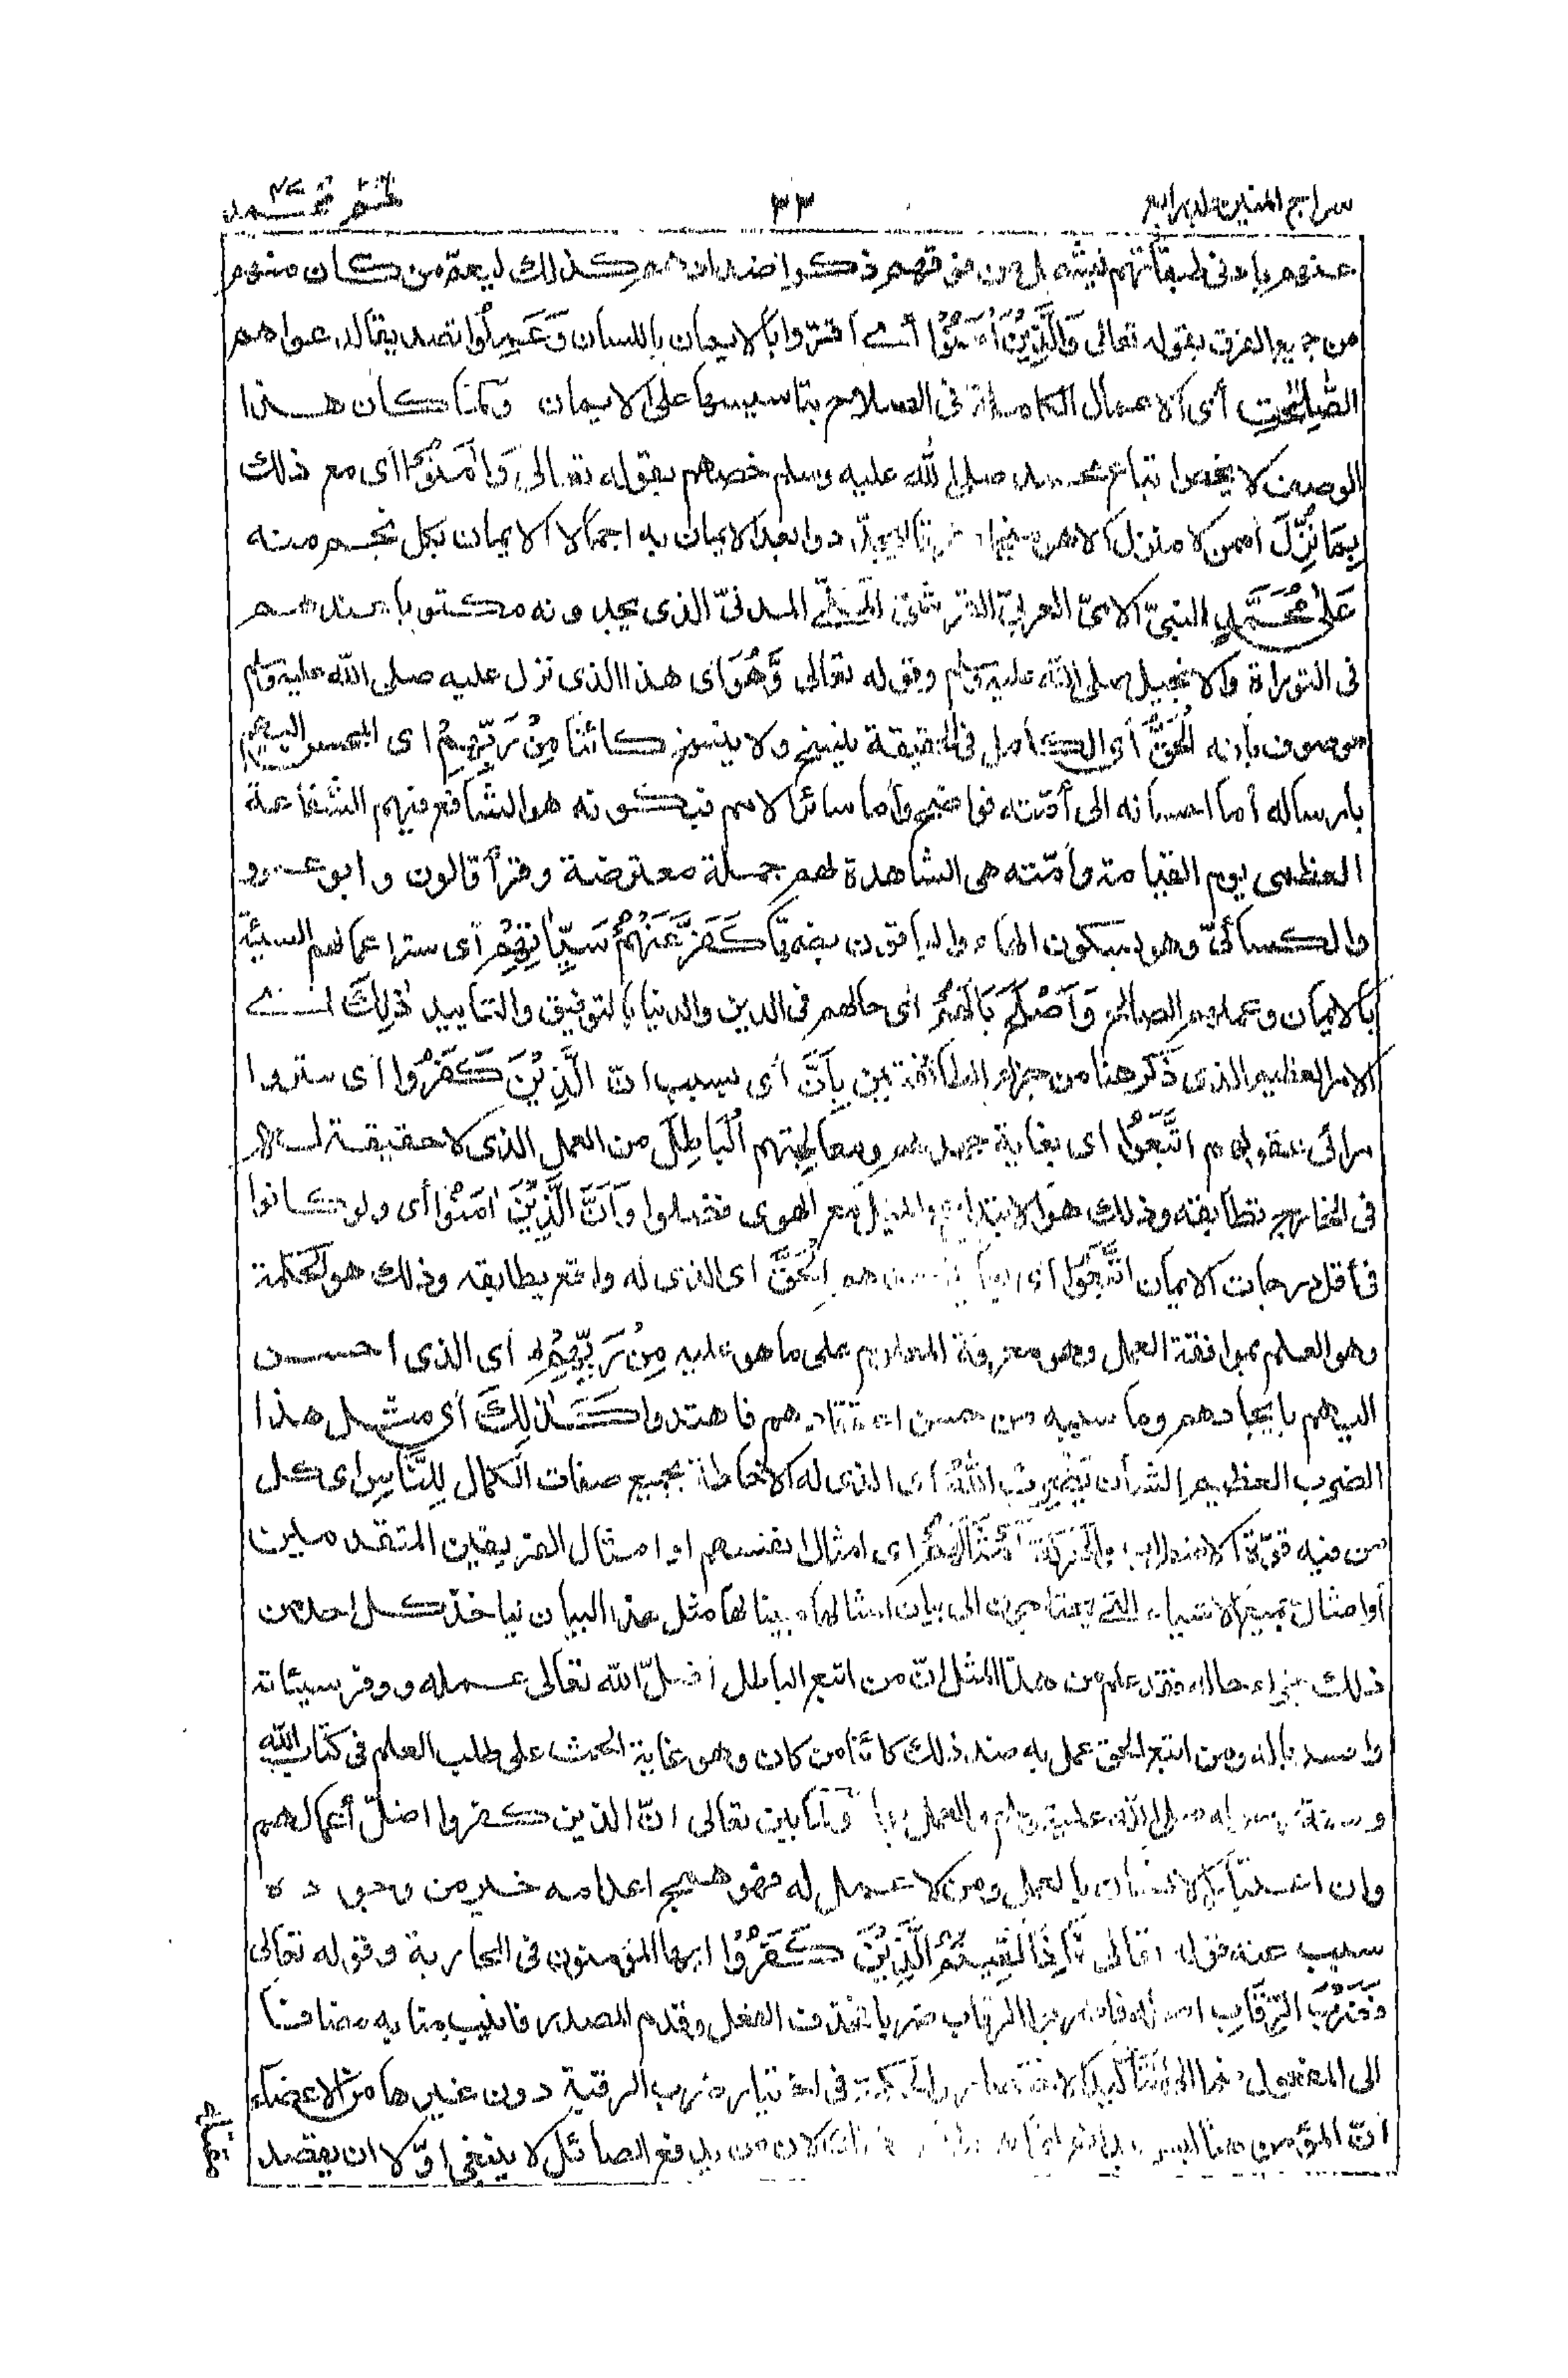 سراج المنير جلد رابع ٣٣ تفسير محمد
من جميع الفرق بقوله تعالى وَالَّذِيْنَ اٰمَنُوْا أى اقرّوا بالايمان باللسان وَعَمِلُوا تصديقا لدعواهم
الصّٰلِحٰتِ أى الاعمال الكاملة فى الصلاح بتاسيسها على الايمان ولما كان هذا
الوصف لا يخص اتباع محمد صلى الله عليه وسلم خصهم بقوله تعالى وَاٰمَنُوْا أى مع ذلك
بِمَا نُزِّلَ أى ممن لا منزل الا هو منجما بعد الايمان به اجمالا الايمان بكل نجم منه
عَلٰى مُحَمَّدٍ النبىّ الامىّ العربىّ القرشىّ المكىّ المدنىّ الذى يجدونه مكتوبا عندهم
فى التوراة والانجيل صلى الله عليه وسلم وقوله تعالى وَّهُوَ اى هذا الذى نزل عليه صلى الله عليه وسلم
موصوف بأنه الْحَقُّ أى الكامل فى الحقيقة ينسخ ولا ينسخ كائنا مِنْ رَّبِّهِمْ اى المحسن اليهم
بارساله أما احسانه الى أمّته فواضح وأما سائر الامم فبكونه هو الشافع فيهم الشفاعة
العظمى يوم القيامة وأمّته هى الشاهدة لهم جملة معترضة وقرأ قالون وابو عمرو
والكسائىّ وهو بسكون الهاء والباقون بضمها كَفَّرَ عَنْهُمْ سَيِّاٰتِهِمْ أى ستر اعمالهم السيئة
بالايمان وعملهم الصالح وَاَصْلَحَ بَالَهُمْ أى حالهم فى الدين والدنيا بالتوفيق والتاييد ذٰلِكَ أى
الامر العظيم الذى ذكر هنا من جزاء الطائفتين بِاَنَّ أى بسبب انّ الَّذِيْنَ كَفَرُوا أى ستروا
مرائى عقولهم اتَّبَعُوا اى بغاية جهدهم ومعالجتهم الْبَاطِلَ من العمل الذى لا حقيقة له
فى الخارج تطابقه وذلك هو الابتداع والميل مع الهوى فضلوا وَاَنَّ الَّذِيْنَ اٰمَنُوْا أى ولو كانوا
فى أقل درجات الايمان اتَّبَعُوا أى الْحَقَّ اى الذى له واقع يطابقه وذلك هو الحكمة
وهو العلم بموافقة العمل وهو معرفة المعلوم على ما هو عليه مِنْ رَّبِّهِمْ أى الذى احسن
اليهم بايجادهم وما سببه من حسن اعتقادهم فاهتدوا كَذٰلِكَ أى مثل هذا
الضرب العظيم الشأن يَضْرِبُ اللّٰهُ أى الذى له الاحاطة بجميع صفات الكمال لِلنَّاسِ اى كل
من فيه قوّة الاضطراب والحركة اَمْثَالَهُمْ اى امثال انفسهم او امثال الفريقين المتقدمين
أو امثال جميع الاشياء التى يحتاجون الى بيان امثالها مبينا لها مثل هذا البيان ليأخذ كل احد من
ذلك جزاء حاله فقد علم من هذا المثل انّ من اتبع الباطل أضلّ الله تعالى عمله ووفر سيئاته
وافسد باله ومن اتبع الحق عمل به ضد ذلك كائنا من كان وهو غاية الحث على طلب العلم فى كتاب الله
وسنة رسوله صلى الله عليه وسلم والعمل بها ولما بين تعالى انّ الذين كفروا اضلّ أعمالهم
وان بالعمل ومن لا عمل له فهو همج اعدامه خير من وجوده
سبب عنه قوله تعالى فَاِذَا لَقِيْتُمُ الَّذِيْنَ كَفَرُوْا ايها المؤمنون فى المحاربة وقوله تعالى
فَضَرْبَ الرِّقَابِ اصله فاضربوا الرقاب ضربا فحذف الفعل وقدم المصدر فانيب منابه مضافا
الى المفعول والحكمة فى اختيار ضرب الرقبة دون غيرها من الاعضاء
أنّ المؤمن هنا ليس يدفع الصائل لا ينبغى اوّلا ان يقصد